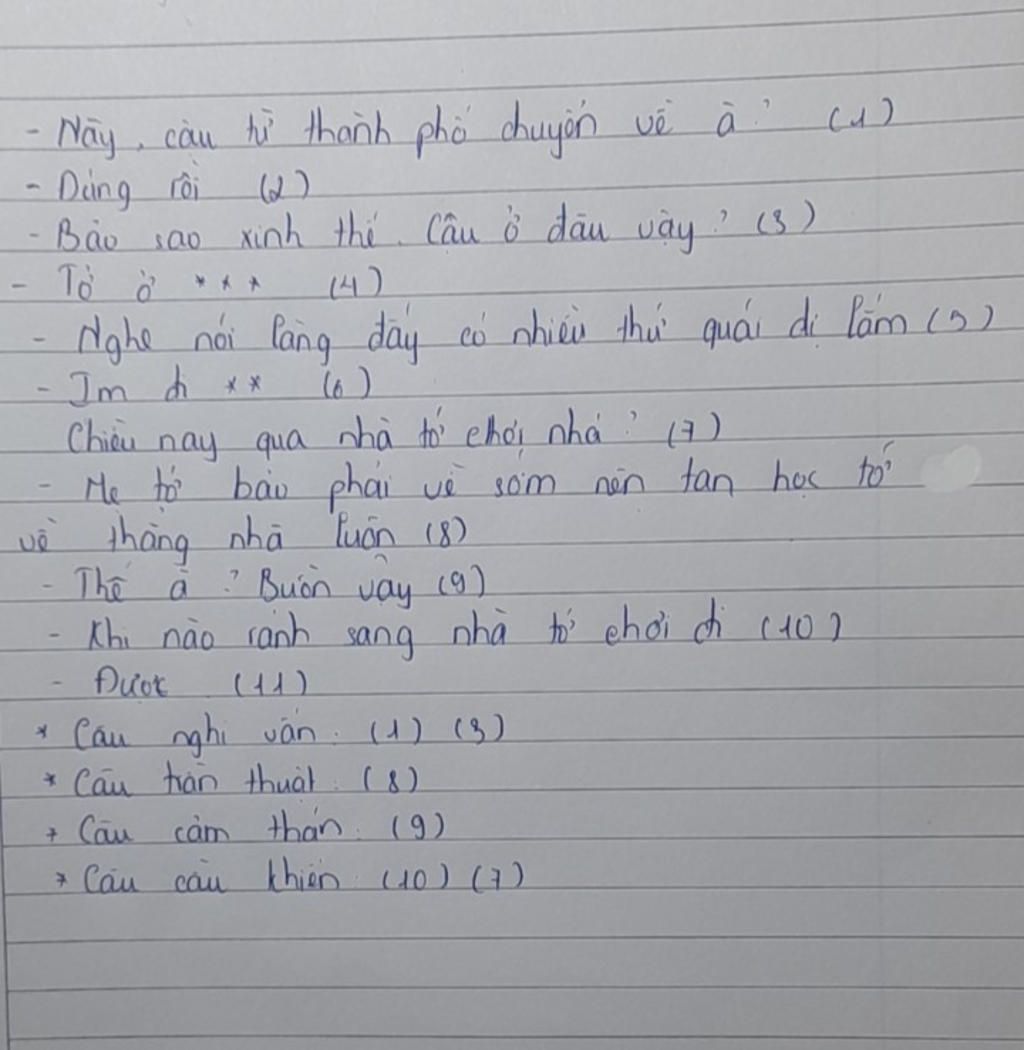 - Này, cậu từ thành phố chuyển về à? (1)
- Đúng rồi (2)
- Bảo sao xinh thế. Cậu ở đâu vậy? (3)
- Tớ ở *** (4)
- Nghe nói làng đấy có nhiều thứ quái dị lắm (5)
- Im đi ** (6)
Chiều nay qua nhà tớ chơi nhá? (7)
- Mẹ tớ bảo phải về sớm nên tan học tớ
về thẳng nhà luôn (8)
- Thế à? Buồn vậy (9)
- Khi nào rảnh sang nhà tớ chơi đi (10)
- Được (11)
* Câu nghi vấn: (1) (3)
* Câu trần thuật: (8)
* Câu cảm thán: (9)
* Câu cầu khiến: (10) (7)